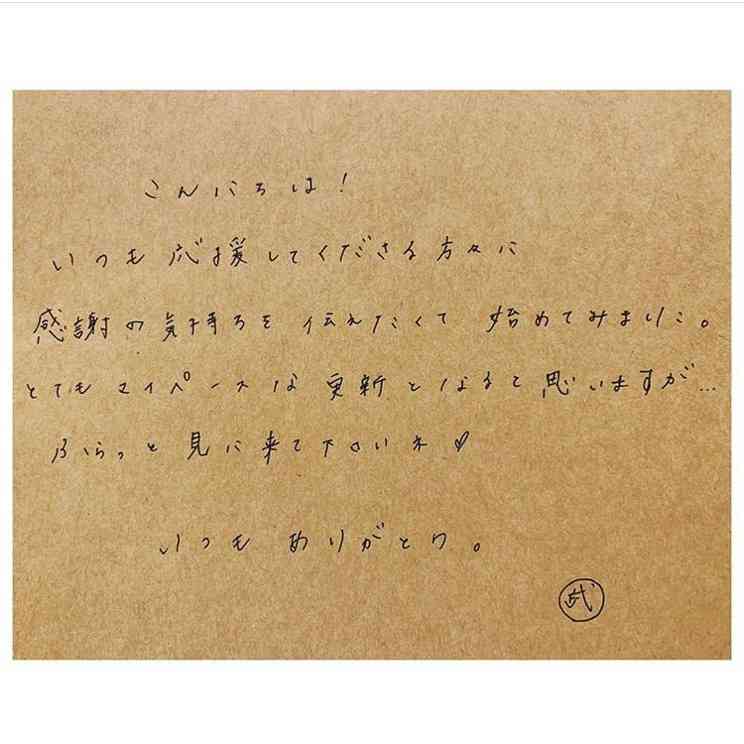 こんにちは!
いつも応援してくださる方々に
感謝の気持ちを伝えたくて 始めてみました。
とてもマイペースな更新となると思いますが...
ふらっと見に来て下さいネ♡
いつもありがとう。
武